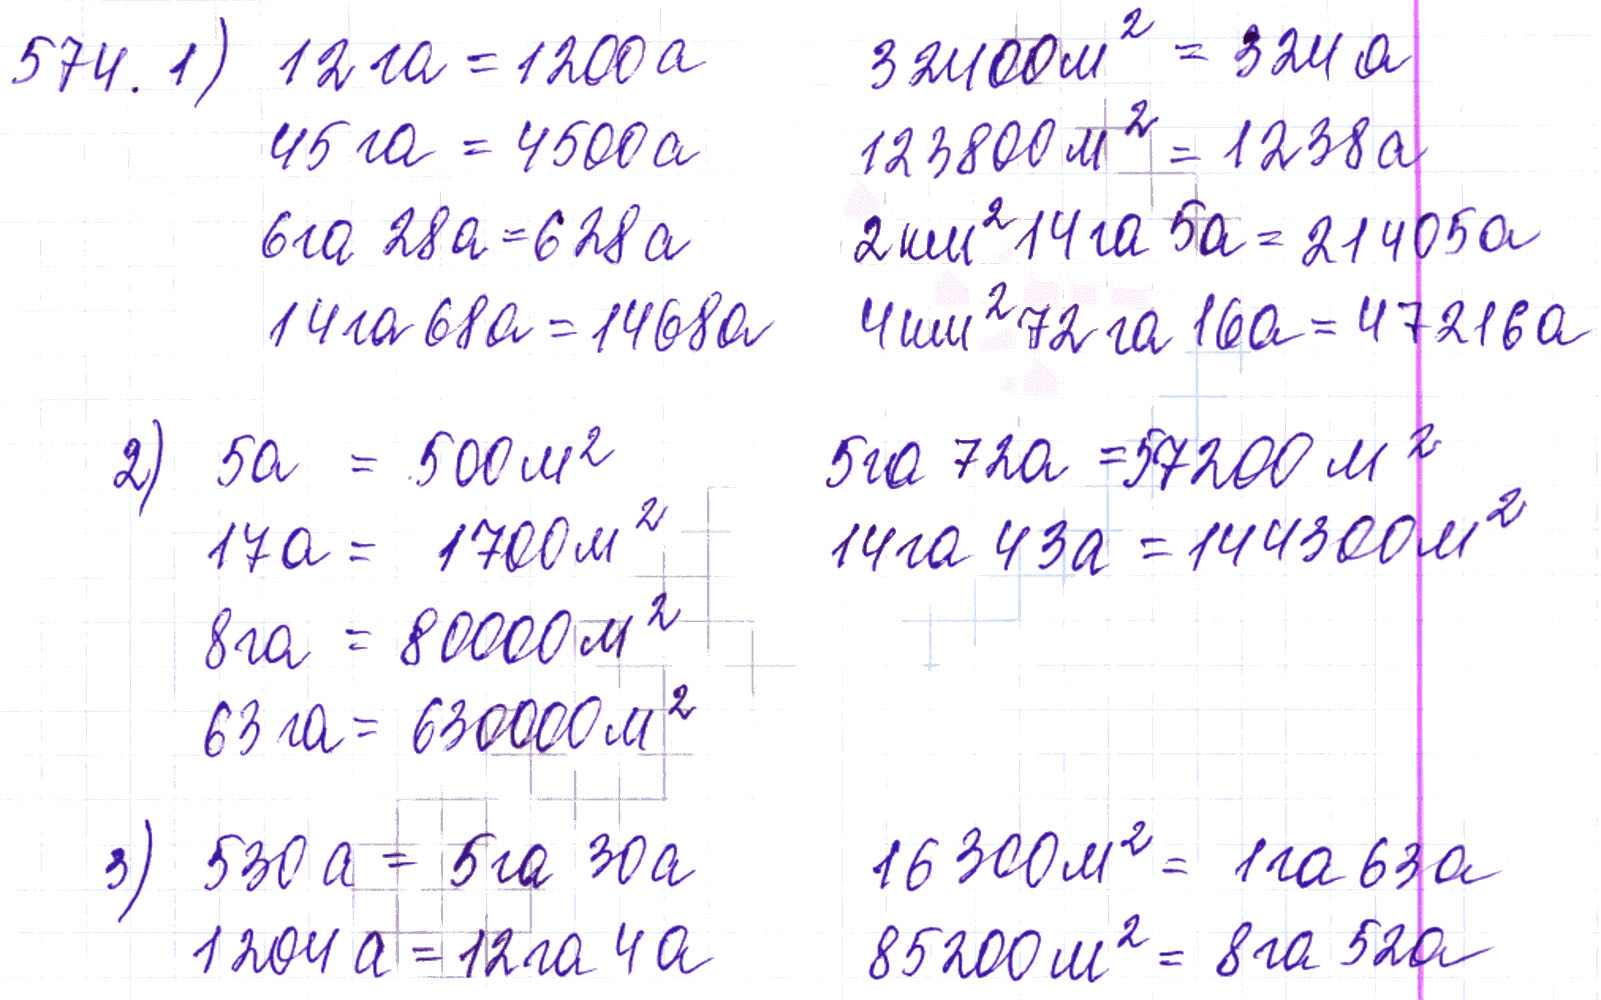 574. 1) 12 га = 1200 а 32400 м² = 324 а
45 га = 4500 а 123800 м² = 1238 а
6 га 28 а = 628 а 2 км² 14 га 5 а = 21405 а
14 га 68 а = 1468 а 4 км² 72 га 16 а = 47216 а
2) 5 а = 500 м² 5 га 72 а = 57200 м²
17 а = 1700 м² 14 га 43 а = 144300 м²
8 га = 80000 м²
63 га = 630000 м²
3) 530 а = 5 га 30 а 16300 м² = 1 га 63 а
1204 а = 12 га 4 а 85200 м² = 8 га 52 а